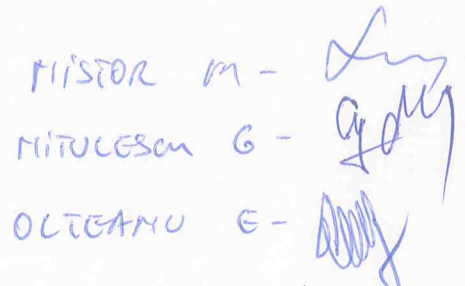 MISTOR M -
MITULESCU G -
OLTEANU E -